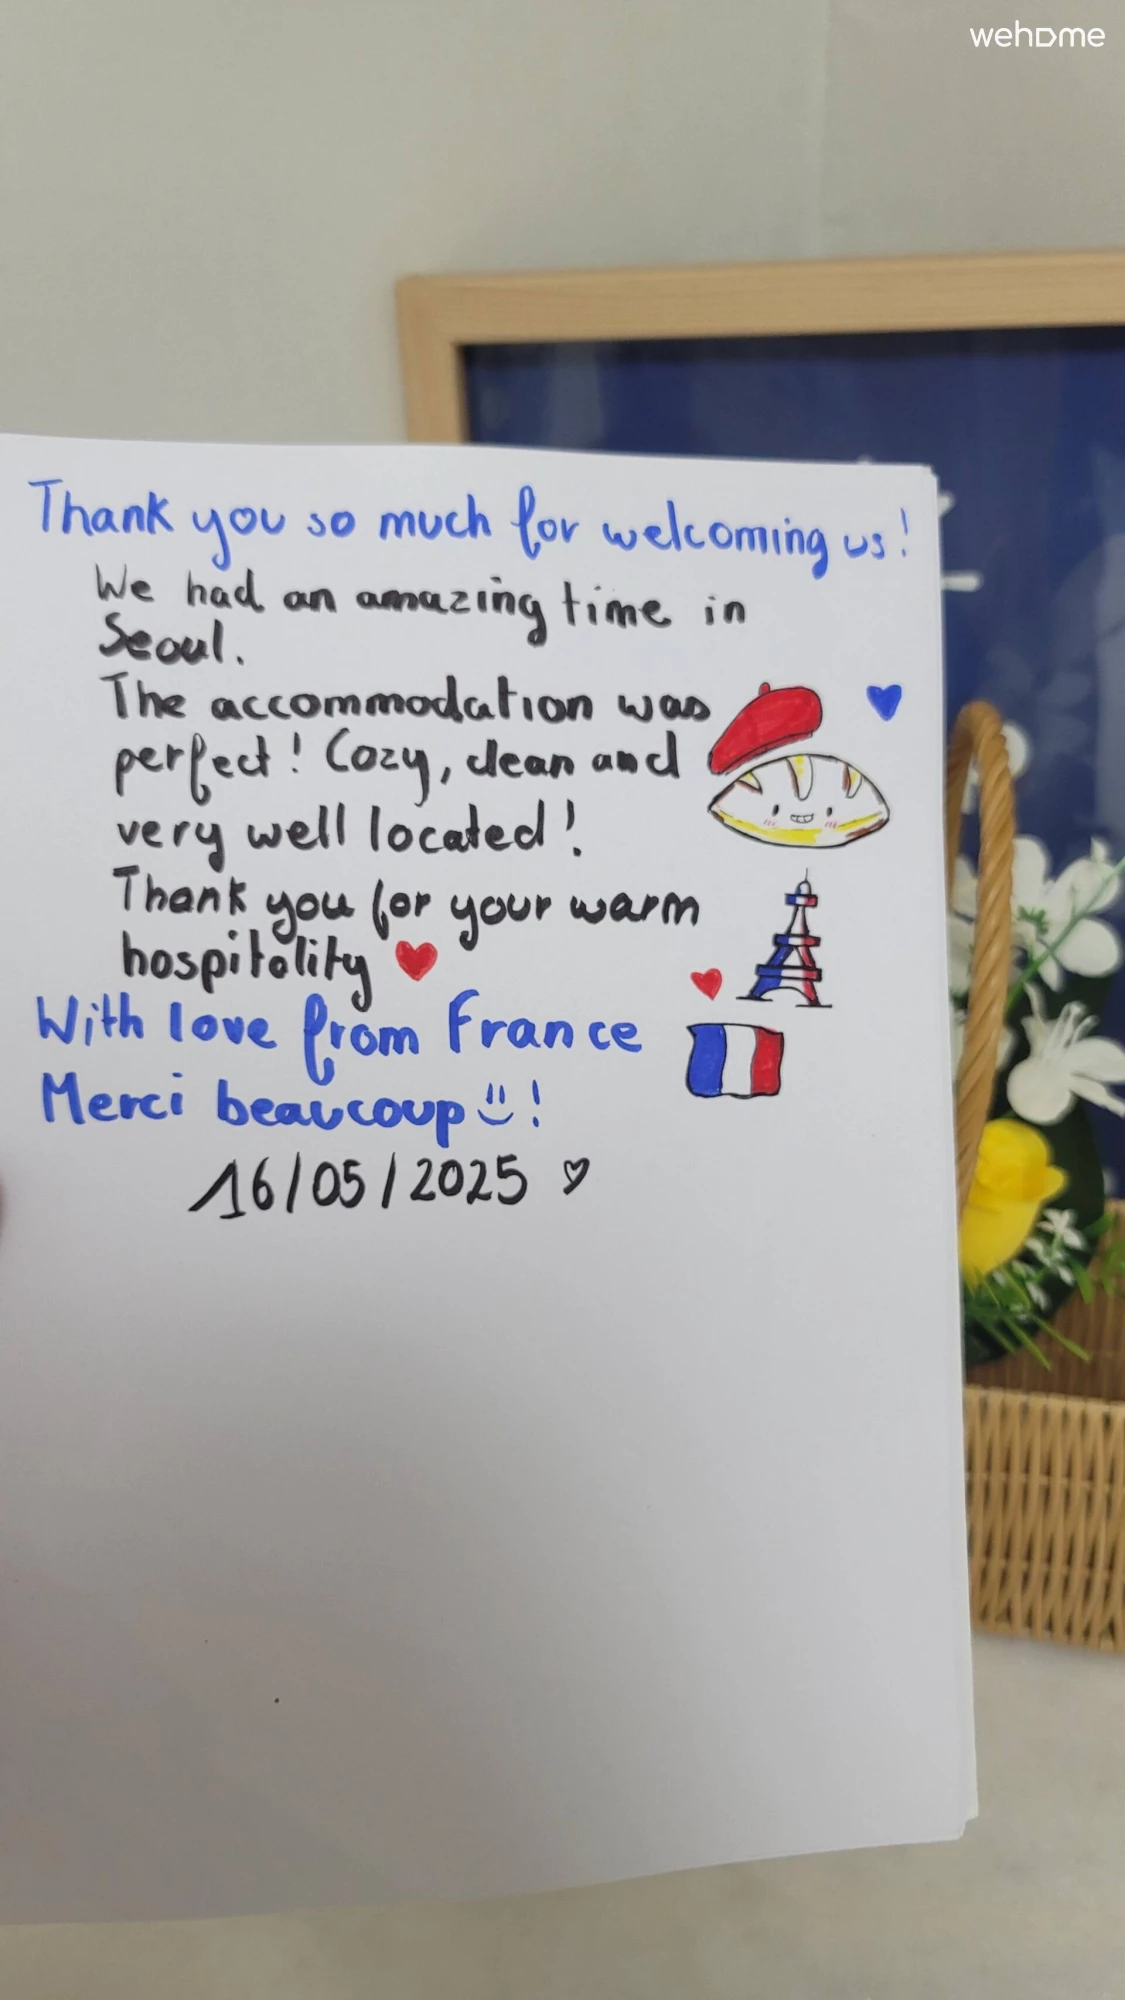 wehome
Thank you so much for welcoming us!
We had an amazing time in
Seoul.
The accommodation was
perfect! Cozy, clean and
very well located!
Thank you for your warm
hospitality ♥
With love from France
Merci beaucoup :)!
16/05/2025 ♡